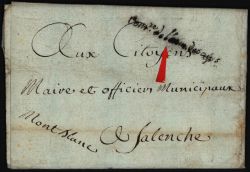 Aux Citoyens
Maire et officiers Municipaux
Mont blanc
a Salenche